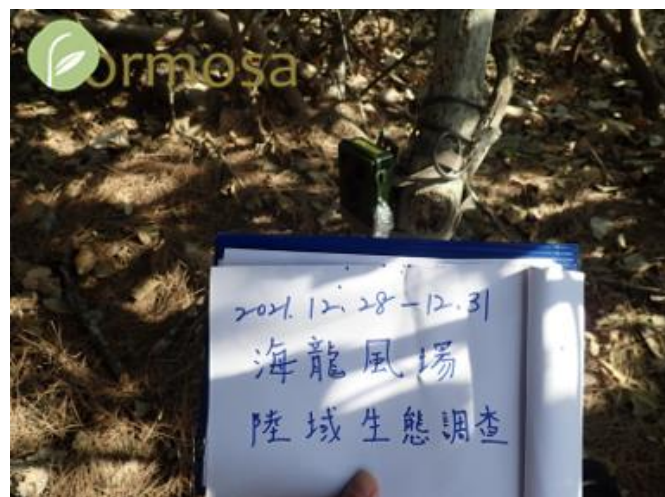 Formosa
2021.12.28-12.31
海龍風場
陸域生態調查